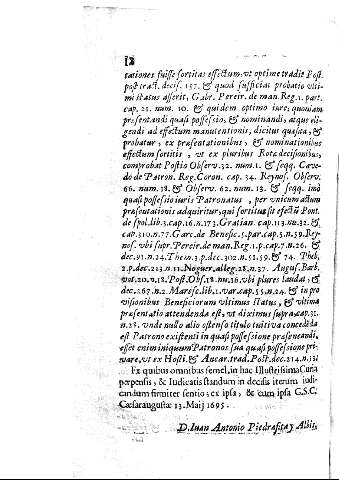 12
tationes fuisse sortitas effectum, vt optime tradit Post.
post tract. decis. 157. & quod sufficiat probatio vlti-
mi status asserit, Gabr. Pereir. de man. Reg. 1. part.
cap. 25. num. 10. & quidem optimo iure; quoniam
præsentandi quasi possessio, & nominandi, atque eli-
gendi ad effectum manutentionis, dicitur quæsita, &
probatur, ex præsentationibus, & nominationibus
effectum sortitis, vt ex pluribus Rotæ decisionibus,
comprobat Postio Observ. 22. num. 1. & seqq.
do de Patron. Reg. Coron. cap. 34. Reynos. Observ.
66. num. 18. & Observ. 62. num. 13. & seqq. imò
quasi possessio iuris Patronatus, per vnicum actum
præsentationis adquiritur, qui sortitus sit effectũ Pont.
de spol. lib. 3. cap. 16. n. 173. Gratian. cap. 113. nu. 32. &
cap. 310. n. 77. Garc. de Benefic. 5. par. cap. 5. n. 59. Rey-
nos. vbi supr. Pereir. de man. Reg. 1. p. cap. 7. n. 26. &
dec. 91. n. 24. Them. 3. p. dec. 302. n. 51. 59. & 74. Theb,
2. p. dec. 213. n. 11. Noguer. alleg. 28. n. 37. Augus. Barb.
vot. 20. n. 18. Post. Obs. 18. nu. 16. vbi plures laudat, &
dec. 267. n. 2. Mares c. lib. 2. var. cap. 55. n. 24. & in pro
visionibus Beneficiorum vltimus status, & vltima
præsentatio attendenda est, vt diximus supra cap. 32.
n. 28. vnde nullo alio ostenso titulo tuitiva concedẽda
est Patrono existenti in quasi possessione præsentandi,
esset enim iniquum Patronos sua quasi possessione pri-
uare, vt ex Hosti. & Ancar. trad. Post. dec. 214. n. 13.
Ex quibus omnibus semel, in hac Illustrissima Curia
perpensis, & Iudicatis standum in decisis iterum iudi-
candum firmiter sentio; ex ipsa, & cum ipsa G.S.C.
Cæsaraugustæ 13. Maij 1695.
D. Iuan Antonio Piedrafita y Albis,